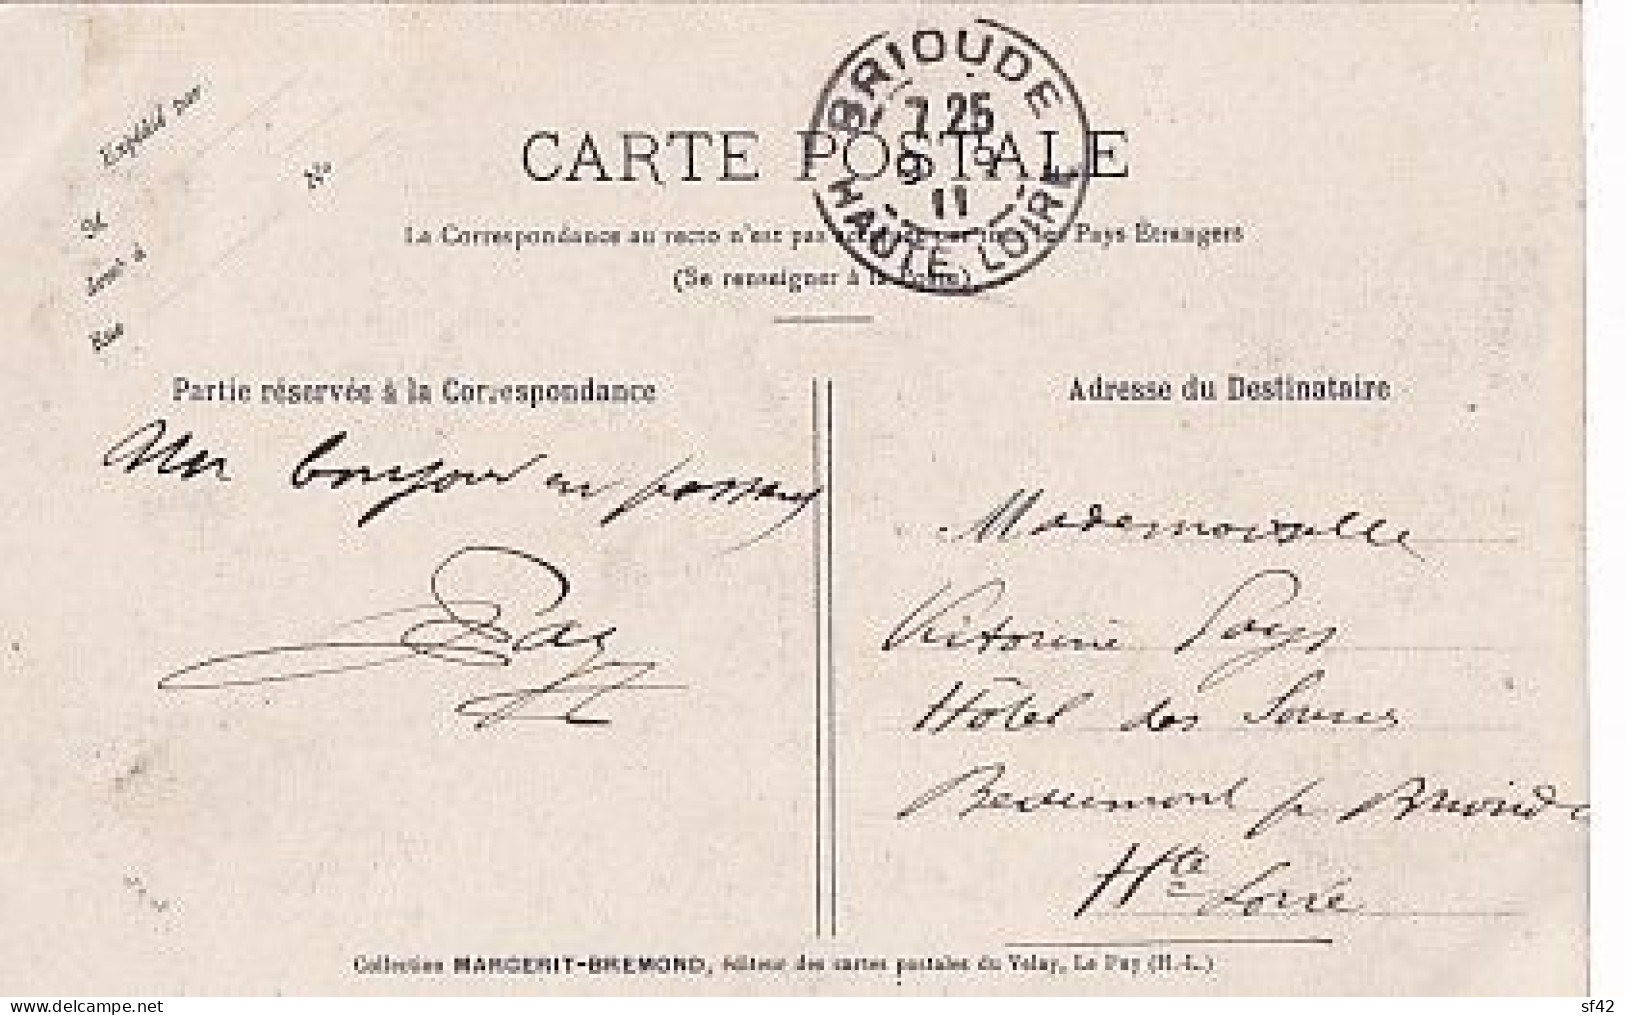 BRIOUDE
7 25
9 - 9
11
HAUTE LOIRE
CARTE POSTALE
Expédié par
M
demt à
Rue
No
La Correspondance au recto n'est pas par les Pays Étrangers
(Se renseigner à la Poste)
Partie réservée à la Correspondance
Adresse du Destinataire
Un bonjour en passant
Mademoiselle
Victorine Pays
Hôtel des Sources
Beaumont pr Brioude
Hte Loire
Collection MARGERIT-BREMOND, éditeur des cartes postales du Velay, Le Puy (H.-L.)
sf42